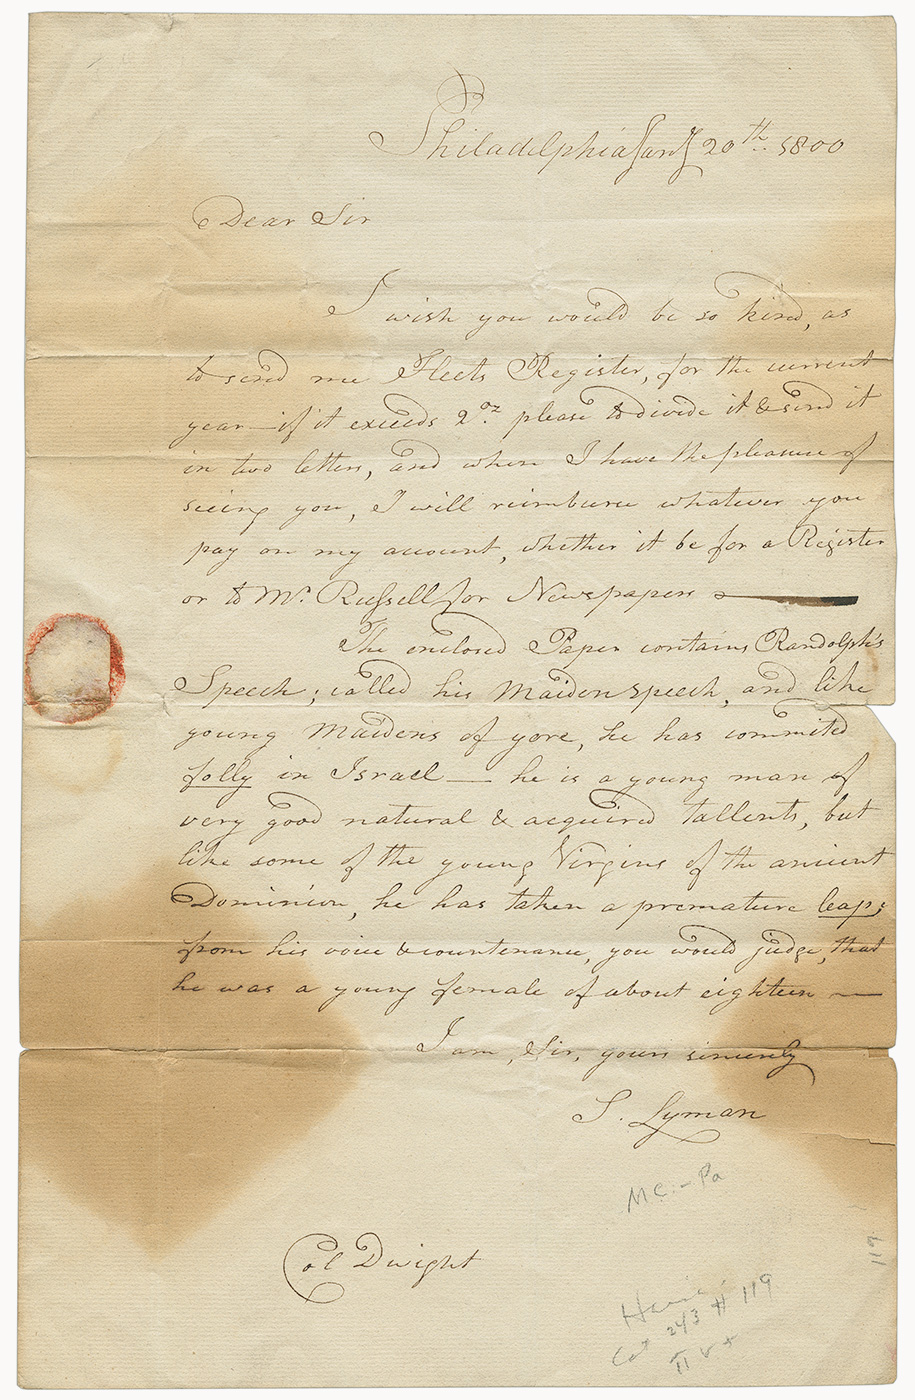 Philadelphia Jany 20th 1800
Dear Sir
I wish you would be so kind, as
to send me Fleets Register, for the current
year — if it exceeds 2 oz. please to divide it & send it
in two letters, and when I have the pleasure of
seeing you, I will reimburse whatever you
pay on my account, whether it be for a Register
or to Mr. Russell for Newspapers
The enclosed Paper contains Randolph's
Speech; called his Maiden Speech, and like
young Maidens of yore, he has commited
folly in Israel — he is a young man of
very good natural & acquired tallents, but
like some of the young Virgins of the ancient
Dominion, he has taken a premature leap;
from his voice & countenance, you would judge, that
he was a young female of about eighteen —
I am, Sir, yours sincerely
S. Lyman
M.C. - Pa
Col Dwight
117
Cat 243 # 119